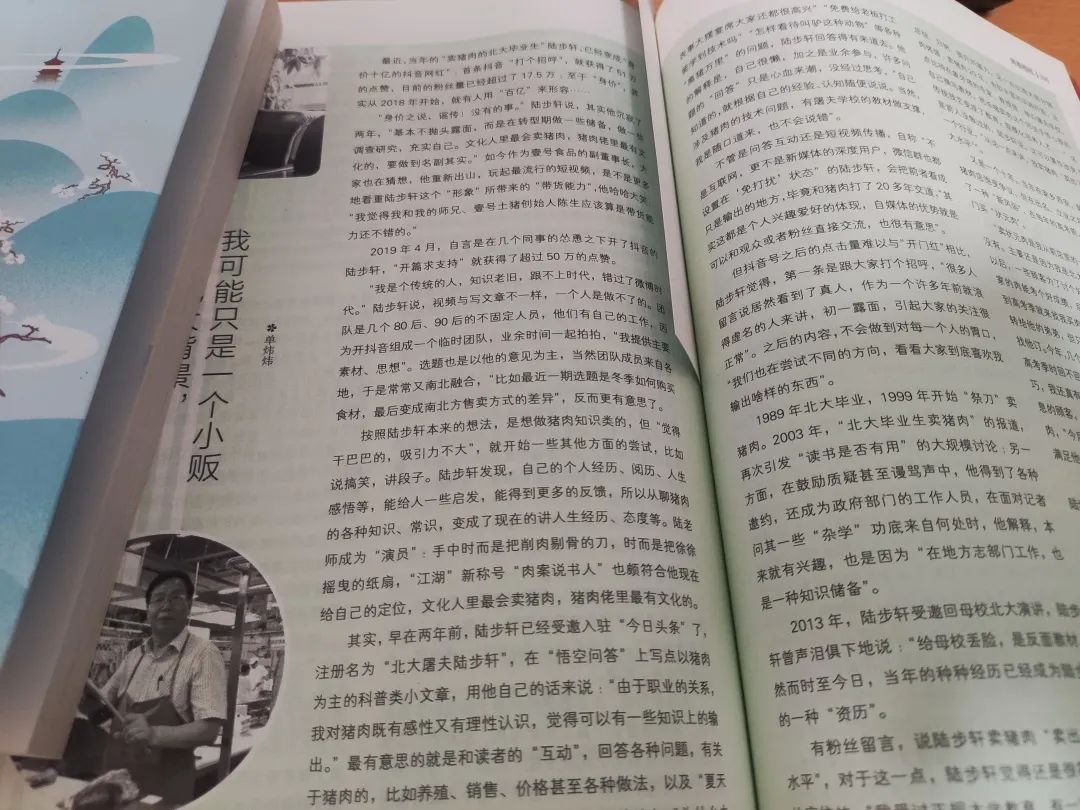 我可能只是一个小贩
背景，
✽ 单炜炜
最近，当年的“卖猪肉的北大毕业生”陆步轩，已经变成“身
价十亿的抖音网红”：首条抖音“打个招呼”，就获得了51万
的点赞，目前的粉丝量已经超过了17.5万；至于“身价”，其
实从2018年开始，就有人用“百亿”来形容……
“身价之说，谣传！没有的事。”陆步轩说，其实他沉寂了
两年，“基本不抛头露面，而是在转型期做一些储备，做一些
调查研究，充实自己。文化人里最会卖猪肉，猪肉佬里最有文
化的，要做到名副其实。”如今作为壹号食品的副董事长，大
家也在猜想，他重新出山，玩起最流行的短视频，是不是更多
地看重陆步轩这个“形象”所带来的“带货能力”，他哈哈大笑，
“我觉得我和我的师兄、壹号土猪创始人陈生应该算是带货能
力还不错的。”
2019年4月，自言是在几个同事的怂恿之下开了抖音的
陆步轩，“开篇求支持”就获得了超过50万的点赞。
“我是个传统的人，知识老旧，跟不上时代，错过了微博时
代。”陆步轩说，视频与写文章不一样，一个人是做不了的。团
队是几个80后、90后的不固定人员，他们有自己的工作，因
为开抖音组成一个临时团队，业余时间一起拍拍，“我提供主要
素材、思想”。选题也是以他的意见为主，当然团队成员来自各
地，于是常常又南北融合，“比如最近一期选题是冬季如何购买
食材，最后变成南北方售卖方式的差异”，反而更有意思了。
按照陆步轩本来的想法，是想做猪肉知识类的，但“觉得
干巴巴的，吸引力不大”，就开始一些其他方面的尝试，比如
说搞笑，讲段子。陆步轩发现，自己的个人经历、阅历、人生
感悟等，能给人一些启发，能得到更多的反馈，所以从聊猪肉
的各种知识、常识，变成了现在的讲人生经历、态度等。陆老
师成为“演员”：手中时而是把削肉剔骨的刀，时而是把徐徐
摇曳的纸扇，“江湖”新称号“肉案说书人”也颇符合他现在
给自己的定位，文化人里最会卖猪肉，猪肉佬里最有文化的。
其实，早在两年前，陆步轩已经受邀入驻“今日头条”了，
注册名为“北大屠夫陆步轩”，在“悟空问答”上写点以猪肉
为主的科普类小文章，用他自己的话来说：“由于职业的关系，
我对猪肉既有感性又有理性认识，觉得可以有一些知识上的输
出。”最有意思的就是和读者的“互动”，回答各种问题，有关
于猪肉的，比如养殖、销售、价格甚至各种做法，以及“夏天
丧事大摆宴席大家还都很高兴”“免费给老板打工
能学到技术吗”“怎样看待叫驴这种动物”等多种
“离猪万里”的问题，陆步轩回答得有来道去。他
的解释是，自己很懒，加之是业余参与，许多问
题的“回答”只是心血来潮，没经过思考，“自己
知道的，就根据自己的经验、认知随便说说。当然，
涉及猪肉的技术问题，有屠夫学校的教材做支撑，
我是随口道来，也不会说错”。
不管是问答互动还是短视频传播，自称“不
是互联网，更不是新媒体的深度用户，微信群也都
设置在‘免打扰’状态”的陆步轩，会把前者看成
只是输出的地方，毕竟和猪肉打了20多年交道，“其
实这都是个人兴趣爱好的体现，自媒体的优势就是
可以和观众或者粉丝直接交流，也很有意思”。
但抖音号之后的点击量难以与“开门红”相比，
陆步轩觉得，第一条是跟大家打个招呼，“很多人
留言说居然看到了真人，作为一个许多年前就浪
得虚名的人来讲，初一露面，引起大家的关注很
正常”。之后的内容，不会做到对每一个人的胃口，
“我们也在尝试不同的方向，看看大家到底喜欢我
输出啥样的东西”。
1989年北大毕业，1999年开始“祭刀”卖
猪肉。2003年，“北大毕业生卖猪肉”的报道，
再次引发“读书是否有用”的大规模讨论；另一
方面，在鼓励质疑甚至谩骂声中，他得到了各种
邀约，还成为政府部门的工作人员，在面对记者
问其一些“杂学”功底来自何处时，他解释，本
来就有兴趣，也是因为“在地方志部门工作，也
是一种知识储备”。
2013年，陆步轩受邀回母校北大演讲，陆步
轩曾声泪俱下地说：“给母校丢脸，是反面教材
然而时至今日，当年的种种经历已经成为陆步
的一种“资历”。
有粉丝留言，说陆步轩卖猪肉“卖出
水平”，对于这一点，陆步轩觉得还是很